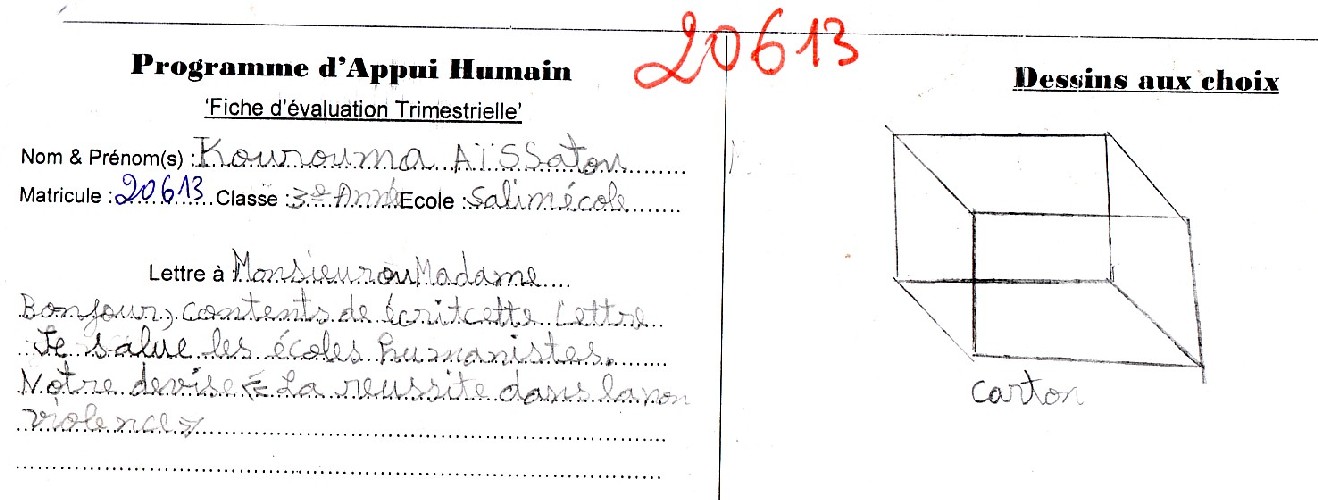 20613
Programme d'Appui Humain
'Fiche d'évaluation Trimestrielle'
Nom & Prénom(s) : Kourouma AÏSSatou
Matricule : 20613 Classe : 3e Anné Ecole : Salimécole
Lettre à Monsieur ou Madame
Bonjour, contents de écrit cette lettre
Je salue les écoles humanistes.
Notre devise « La reussite dans la non
violence »
Dessins aux choix
carton